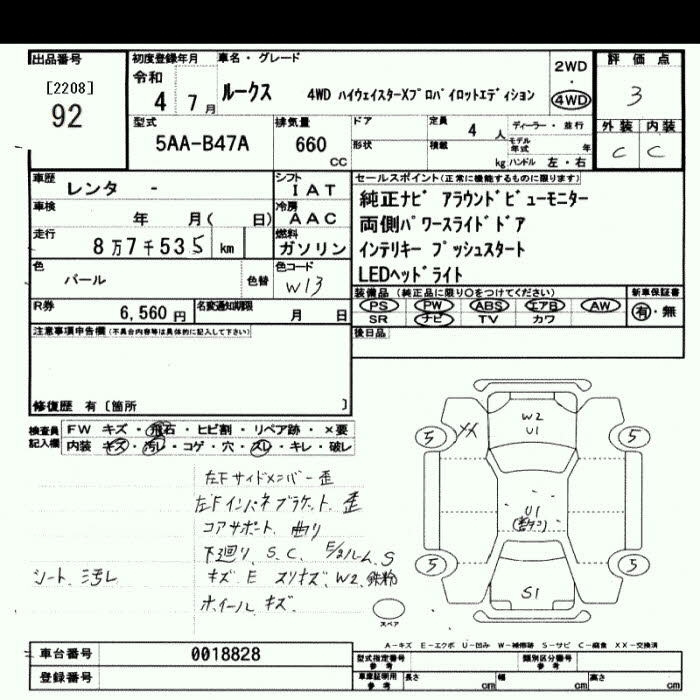 出品番号
[2208]
92
初度登録年月
令和
4 7月
車名・グレード
ルークス 4WD ハイウェイスターXプロパイロットエディション
2WD
・
4WD
評価点
3
外装 内装
C C
型式
5AA-B47A
排気量
660
CC
ドア
形状
定員 4 人
積載 kg
ディーラー・並行
モデル年式 年
ハンドル 左・右
車歴 レンタ -
車検 年 月( 日)
走行 8万7千535 km
シフト
IAT
冷房
AAC
燃料
ガソリン
色 パール
色替
色コード
W13
R券 6,560円
名変通知期限 月 日
セールスポイント(正常に機能するものに限ります)
純正ナビ アラウンドビューモニター
両側パワースライドドア
インテリキー プッシュスタート
LEDヘッドライト
装備品(純正品に限り○をつけてください)
PS PW ABS エアB AW
SR ナビ TV カワ
新車保証書
有・無
後日品
注意事項申告欄(不具合内容等は具体的に記入して下さい)
修復歴 有〔箇所 〕
検査員記入欄
FW キズ・飛石・ヒビ割・リペア跡・×要
内装 キズ・汚レ・コゲ・穴・スレ・キレ・破レ
左Fサイドメンバー歪
左Fインパネブラケット 歪
コアサポート 曲り
下廻り、S、C、
シート、汚レ
キズ E スリキズ、W2、鉄粉
ホイール、キズ
W2
U1
XX
5
5
U1
5
5
S1
スペア
A-キズ E-エクボ U-凹み W-補修跡 S-サビ C-腐食 XX-交換済
車台番号 0018828
登録番号
型式指定番号
参考
類別区分番号
参考
車庫証明用
参考
長さ cm
幅 cm
高さ cm